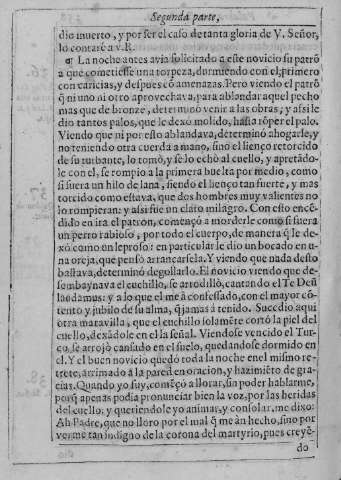 Segunda parte,
dio muerto, y por ser el caso de tanta gloria de V. Señor,
lo contarè a v.R.
¶ La noche antes avia solicitado a este novicio su patrõ
a que cometiesse una torpeza, durmiendo con el; primero
con caricias, y despues cõ amenazas. Pero viendo el patrõ
q̃ ni uno ni otro aprovechava, para ablandar aquel pecho
mas que de bronze, determinò venir a las obras; y assi le
dio tantos palos, que le dexò molido, hasta rõper el palo.
Viendo que ni por esto ablandava, determinò ahogarle, y
no teniendo otra cuerda a mano, sino el lienço retorcido
de su turbante, lo tomò, y se lo echò al cuello, y apretãdo-
le con el, se rompio a la primera buelta por medio, como
si fuera un hilo de lana, siendo el lienço tan fuerte, y mas
torcido como estava, que dos hombres muy valientes no
lo rompieran: y assi fue un claro milagro. Con esto encẽ-
dido en ira el patron, començò a morderle como si fuera
un perro rabioso, por todo el cuerpo, de manera q̃ le de-
xò como un leproso: en particular le dio un bocado en u-
na oreja, que pensò arrancarsela. Y viendo que nada desto
bastava, determinò degollarlo. El novicio viendo que de-
sembaynava el cuchillo, se arrodillò, cantando el Te Deũ
laudamus: y a lo que el me a confessado, con el mayor cõ-
tento y jubilo de su alma, q̃ jamas a tenido. Sucedio aqui
otra maravilla, que el cuchillo solamẽte cortò la piel del
cuello, dexãdole en el la señal. Viendose vencido el Tur-
co, se arrojò cansado en el suelo, quedandose dormido en
el. Y el buen novicio quedò toda la noche en el mismo re-
trete, arrimado a la pared en oracion, y hazimiẽto de gra-
cias. Quando yo fuy, comẽçò a llorar, sin poder hablarme,
porq̃ apenas podia pronunciar bien la voz, por las heridas
del cuello, y queriendole yo animar, y consolar, me dixo:
Ah Padre, que no lloro por el mal q̃ me an hecho, sino por
verme tan indigno de la corona del martyrio, pues creyẽ-
do